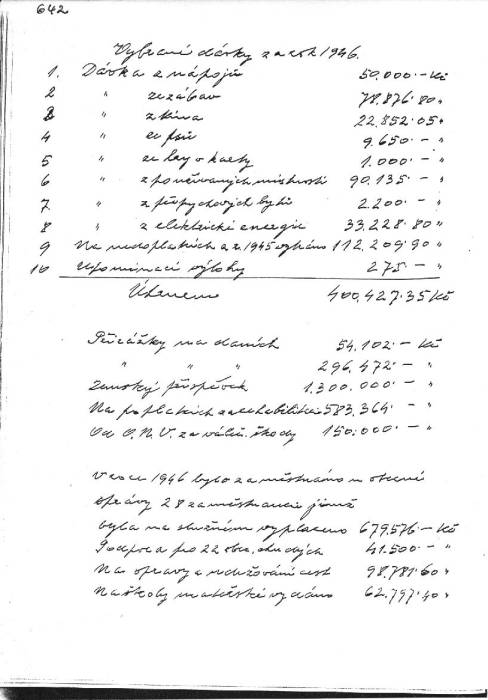 642
Vybrané dávky za rok 1946.
1. Dávka z nápojů 50.000.- Kč
2 " ze zábav 78.876.80 "
3 " z kina 22.852.05 "
4 " ze psů 9.650.- "
5 " ze hry v karty 1.000.- "
6 " z používaných místností 90.135.- "
7 " z přepychových bytů 2.200.- "
8 " z elektrické energie 33.228.80 "
9 Na nedoplatkách z r. 1945 vybráno 112.209.90 "
10 Upomínací výlohy 275.- "
Úhrnem 400.427.35 Kč
Přirážky na daních 54.102.- Kč
" " " 296.472.- "
Zemský příspěvek 1.300.000.- "
Na poplatkách za rehabilitaci 583.364.- "
Od O.N.V. za váleč. škody 150.000.- "
V roce 1946 bylo zaměstnáno v obecní
správy 28 zaměstnanců jimž
bylo na služném vyplaceno 679.576.- Kč
Podpora pro 22 obec. chudých 41.500.- "
Na opravy a udržování cest 98.781.60 "
Na školy mateřské vydáno 62.797.40 "